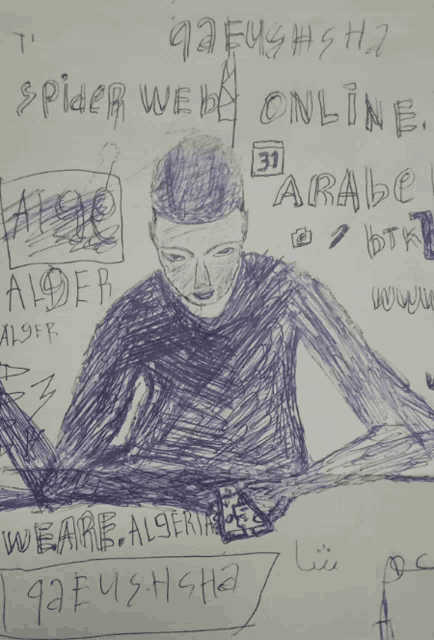 qaEUSHSHA
SPideR WEb ONLINE.
31
ARAbe
ALge
btk
ALgER
ALgER
www
WEARE.ALGERIA
qaEUSHSHA